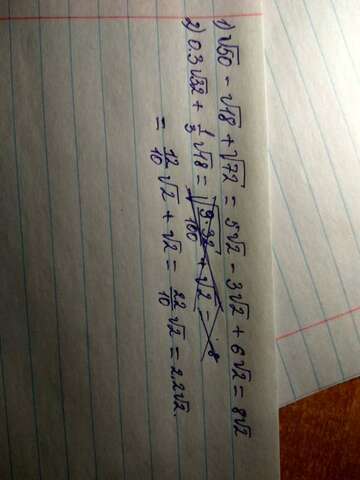 1) √50 - √18 + √72 = 5√2 - 3√2 + 6√2 = 8√2
2) 0.3√32 + 1/3 √18 = √(9·32/100) + √2 =
= 12/10 √2 + √2 = 22/10 √2 = 2.2√2.